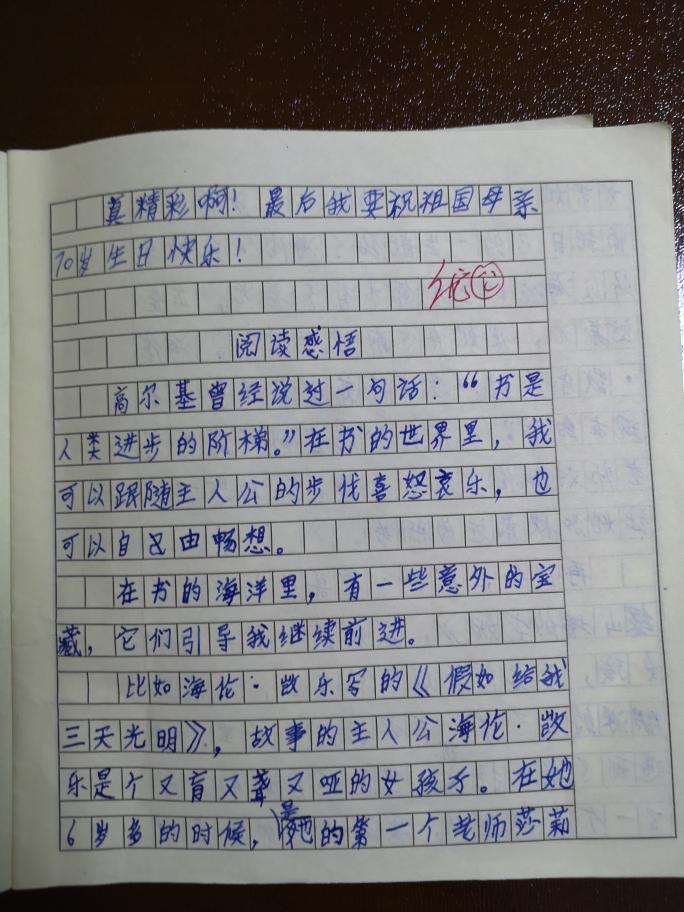 真精彩啊！最后我要祝祖国母亲
70岁生日快乐！
优
阅读感悟
高尔基曾经说过一句话：“书是
人类进步的阶梯。”在书的世界里，我
可以跟随主人公的步伐喜怒哀乐，也
可以自己由畅想。
在书的海洋里，有一些意外的宝
藏，它们引导我继续前进。
比如海伦·凯乐写的《假如给我
三天光明》，故事的主人公海伦·凯
乐是个又盲又聋又哑的女孩子。在她
6岁多的时候，是她的第一个老师莎莉